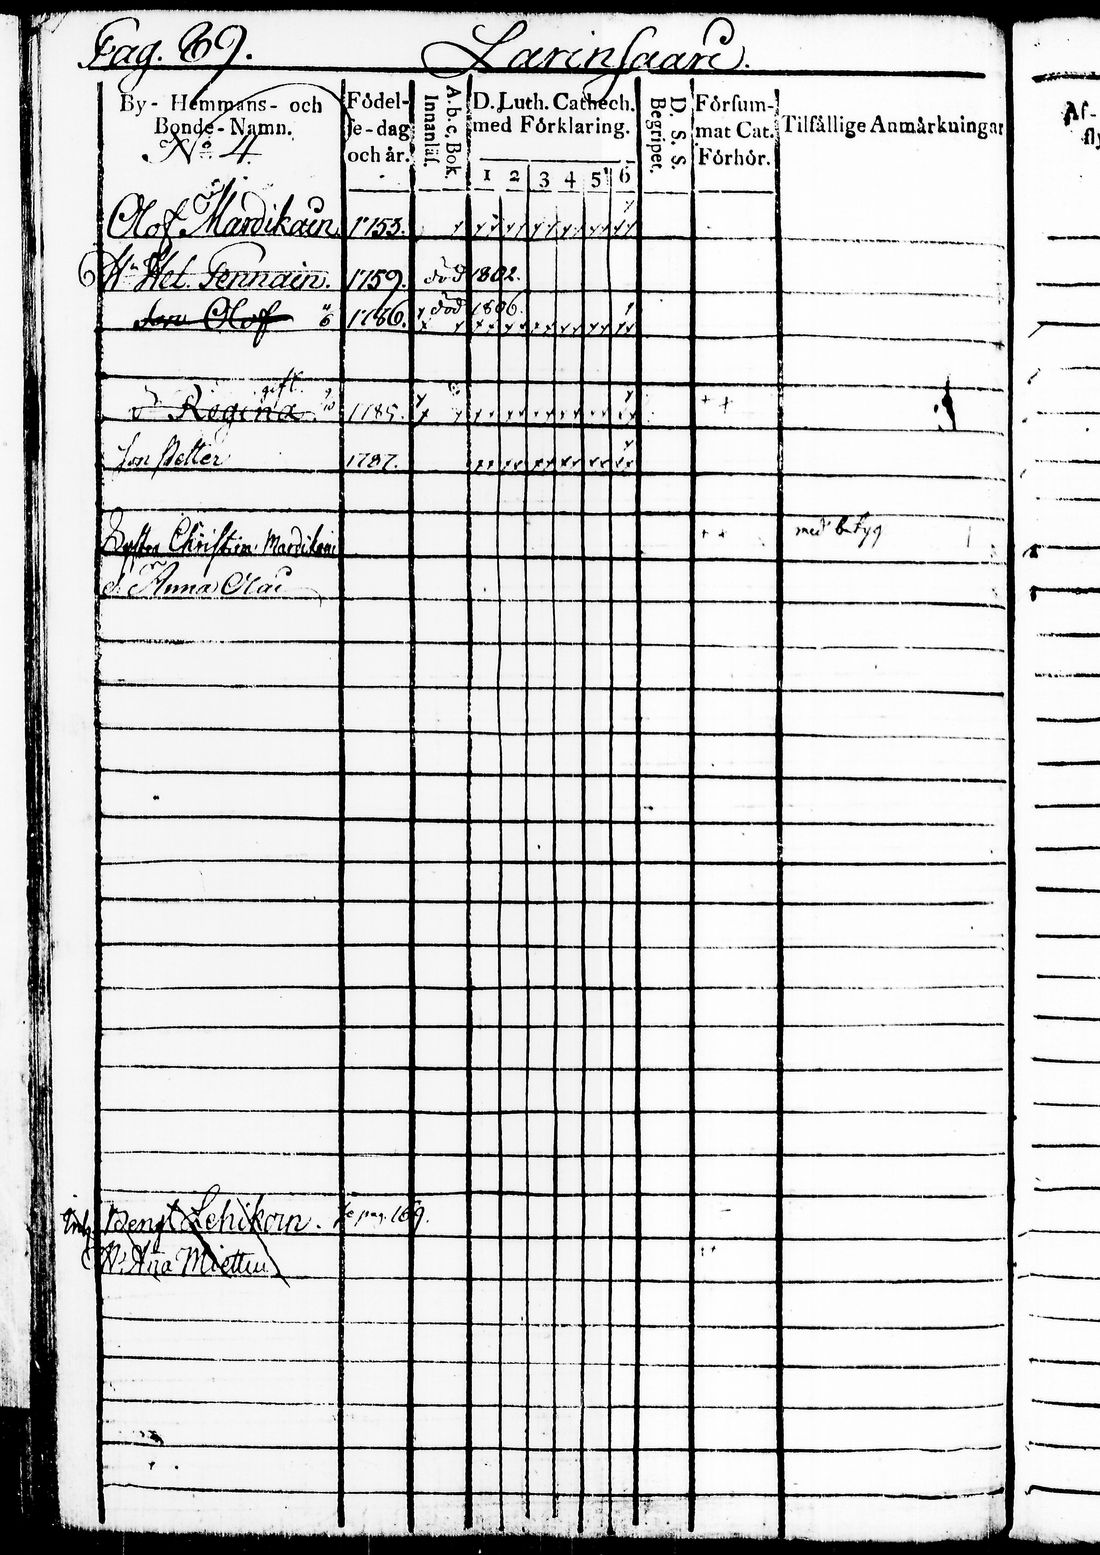 Pag. 89. Larinsaari.
By- Hemmans- och
Bonde-Namn.
No 4
Födel-
se-dag
och år.
A.b.c, Bok.
Innanläs.
D. Luth. Cathech.
med Förklaring.
1 2 3 4 5 6
D. S. S.
Begripet.
Försum-
mat Cat.
Förhör.
Tilfällige Anmärkningar
Af-
Olof Mardikain 1753.
H. Hel. Pennain. 1759. död 1802.
Son Olof 6 1786. död 1806.
gift.
d. Regina 1785. + +
Son Petter 1787.
Syster Christin Mardikain + + med betyg
d. Anna Olai
Inh. Bengt Lehikoin. se pag. 169.
H. Aña Mietti